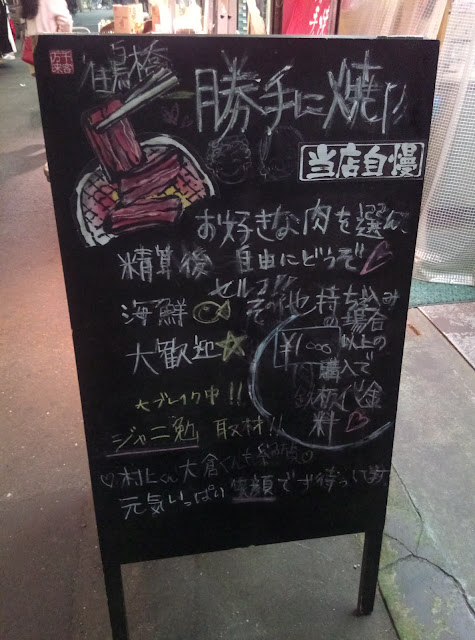 千客万来
鶴橋
勝手に焼
当店自慢
お好きな肉を選ん
精算後 自由にどうぞ
セルフ!!
海鮮 その他 持ち込みの場合
大歓迎 ¥1000以上の
購入で
板代金
料
大ブレイク中!!
ジャニ勉 取材!!
村上くん大倉くんも
元気いっぱい 笑顔でお待ちしてます